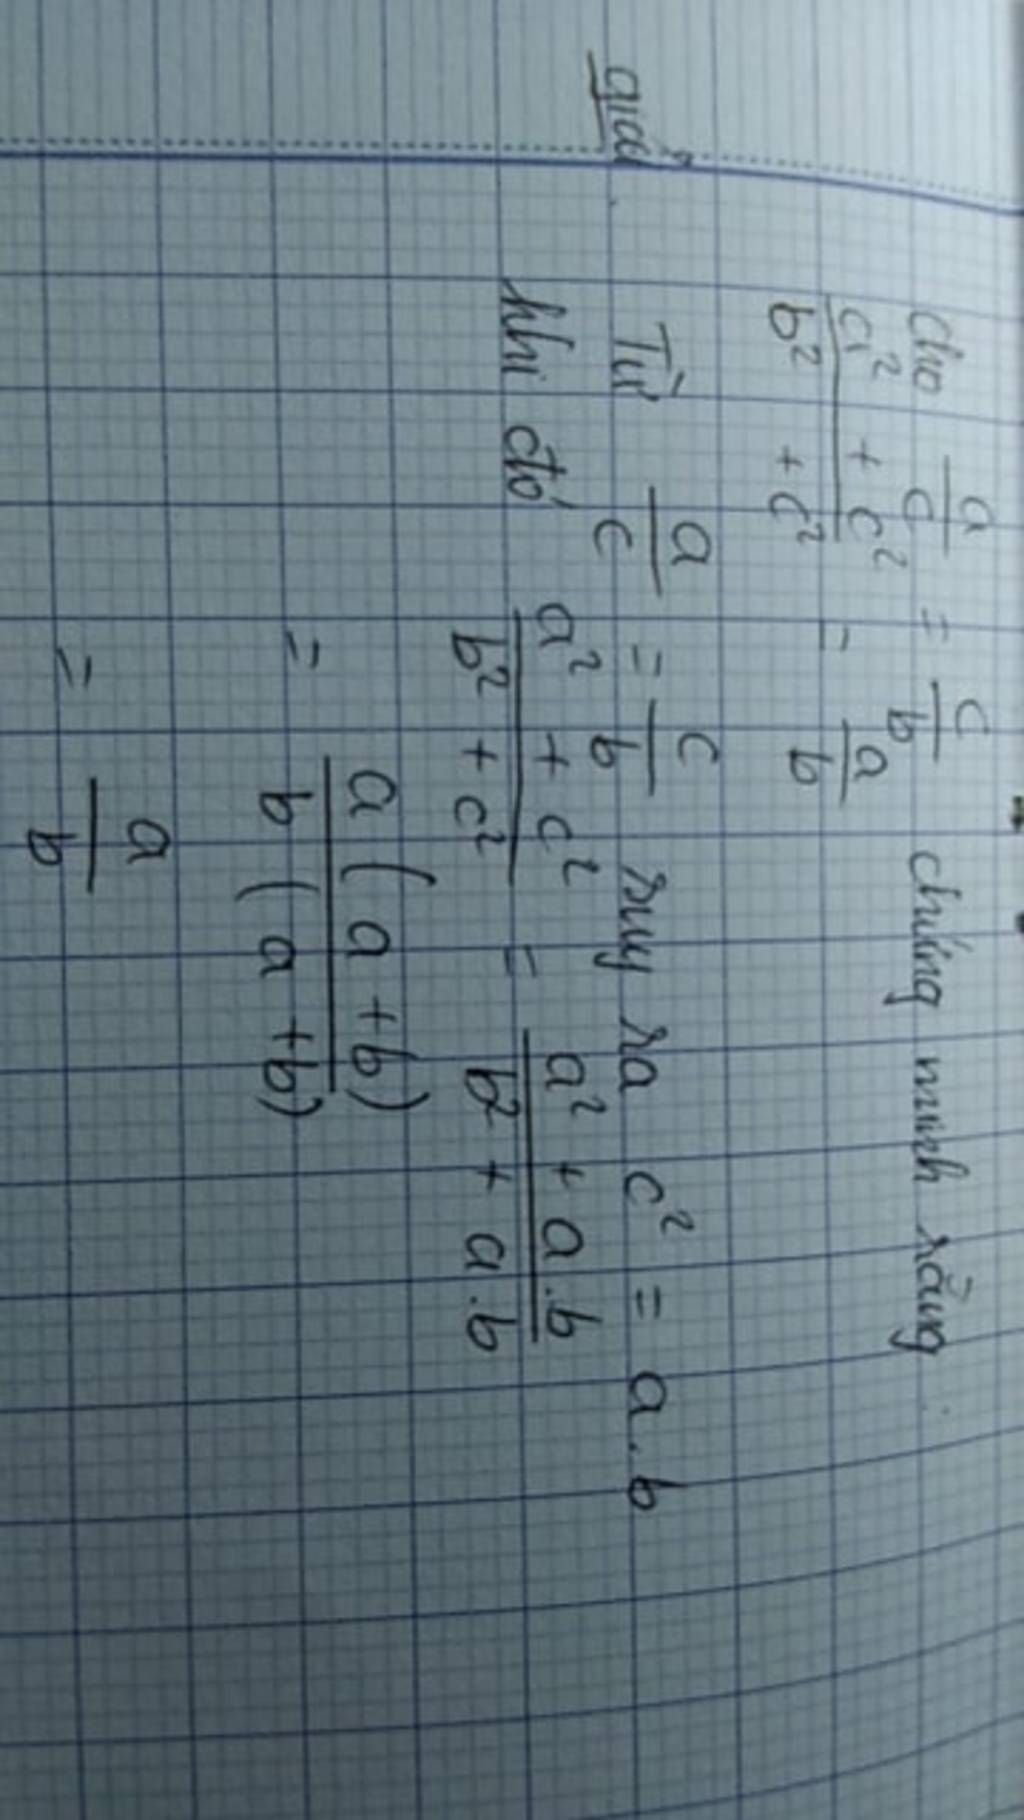 Cho a/c = c/b chứng minh rằng:
a² + c² / b² + c² = a/b
giải
Từ a/c = c/b suy ra c² = a.b
khi đó a² + c² / b² + c² = a² + a.b / b² + a.b
= a (a + b) / b (a + b)
= a/b